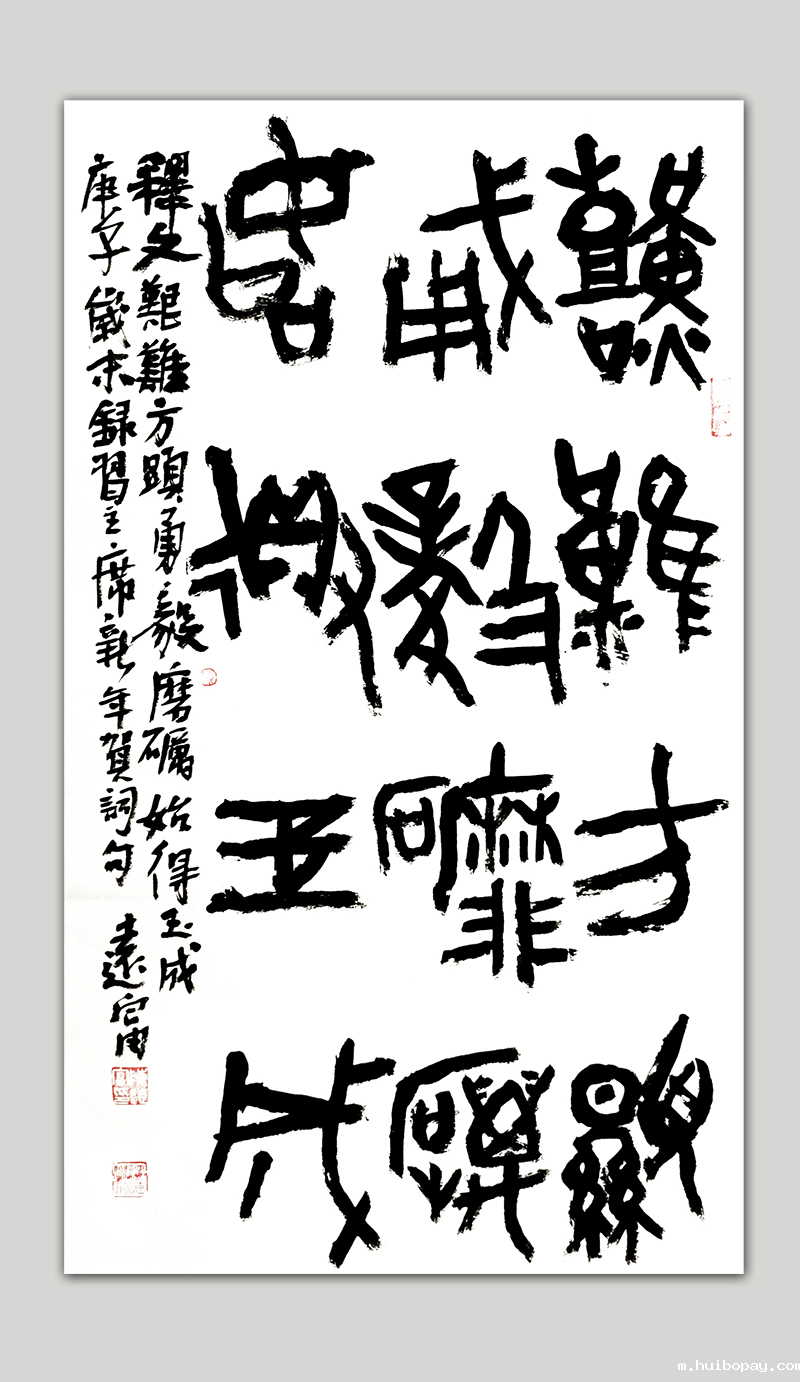 艱難方顯
勇毅磨礪
始得玉成
釋文艱難方顯勇毅磨礪始得玉成
庚子歲末録習主席新年賀詞句
遠
m.huibopay.com